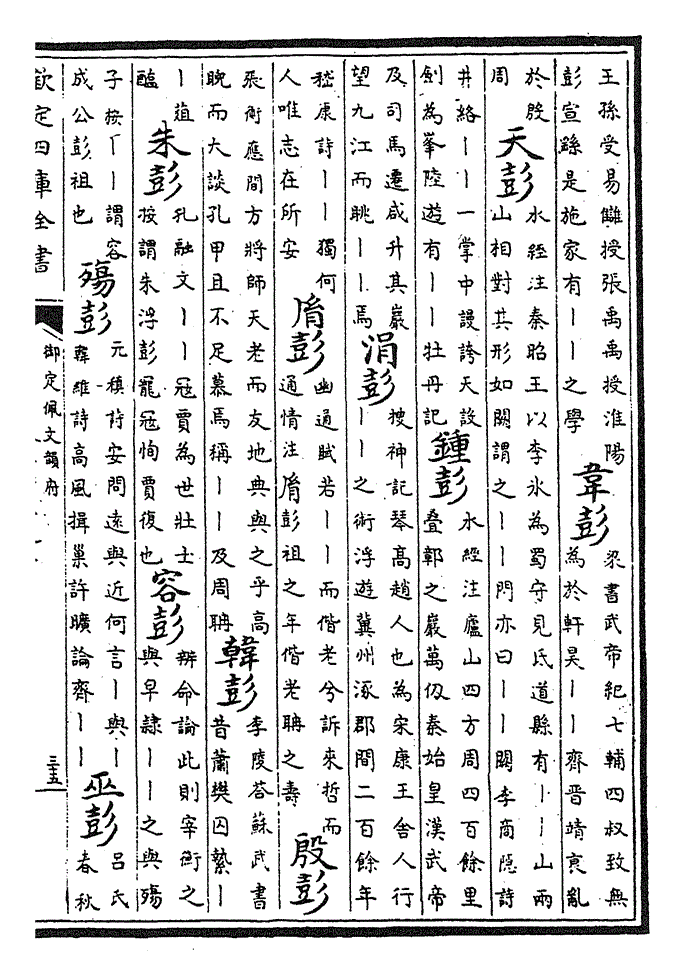 王孫受易讎授張禹禹授淮陽
彭宣繇是施家有丨丨之學
韋彭
梁書武帝紀七輔四叔致無
為於軒昊丨丨齊晉靖衰亂
於殷
周
天彭
水經注秦昭王以李氷為蜀守見氐道縣有丨丨山兩
山相對其形如闕謂之丨丨門亦曰丨丨闕李商隱詩
井絡丨丨一掌中謾誇天設
劍為峯陸遊有丨丨牡丹記
鍾彭
水經注廬山四方周四百餘里
疊鄣之巖萬仭秦始皇漢武帝
及司馬遷咸升其巖
望九江而眺丨丨焉
涓彭
搜神記琴高趙人也為宋康王舍人行
丨丨之術浮遊冀州涿郡間二百餘年
嵇康詩丨丨獨何
人唯志在所安
脩彭
幽通賦若丨丨而偕老兮訴來哲而
通情注脩彭祖之年偕老聃之壽
殷彭
張衡應間方將師天老而友地典與之乎高
睨而大談孔甲且不足慕焉稱丨丨及周聃
韓彭
李陵荅蘇武書
昔蕭樊囚縶丨
丨葅
醢
朱彭
孔融文丨丨冦賈為世壯士
按謂朱浮彭寵冦恂賈復也
容彭
辨命論此則宰衡之
與皁隷丨丨之與殤
子按丨丨謂容
成公彭祖也
殤彭
元稹詩安問遠與近何言丨與丨
韓維詩高風揖巢許曠論齊丨丨
巫彭
呂氏
春秋
欽定四庫全書
御定佩文韻府
三五